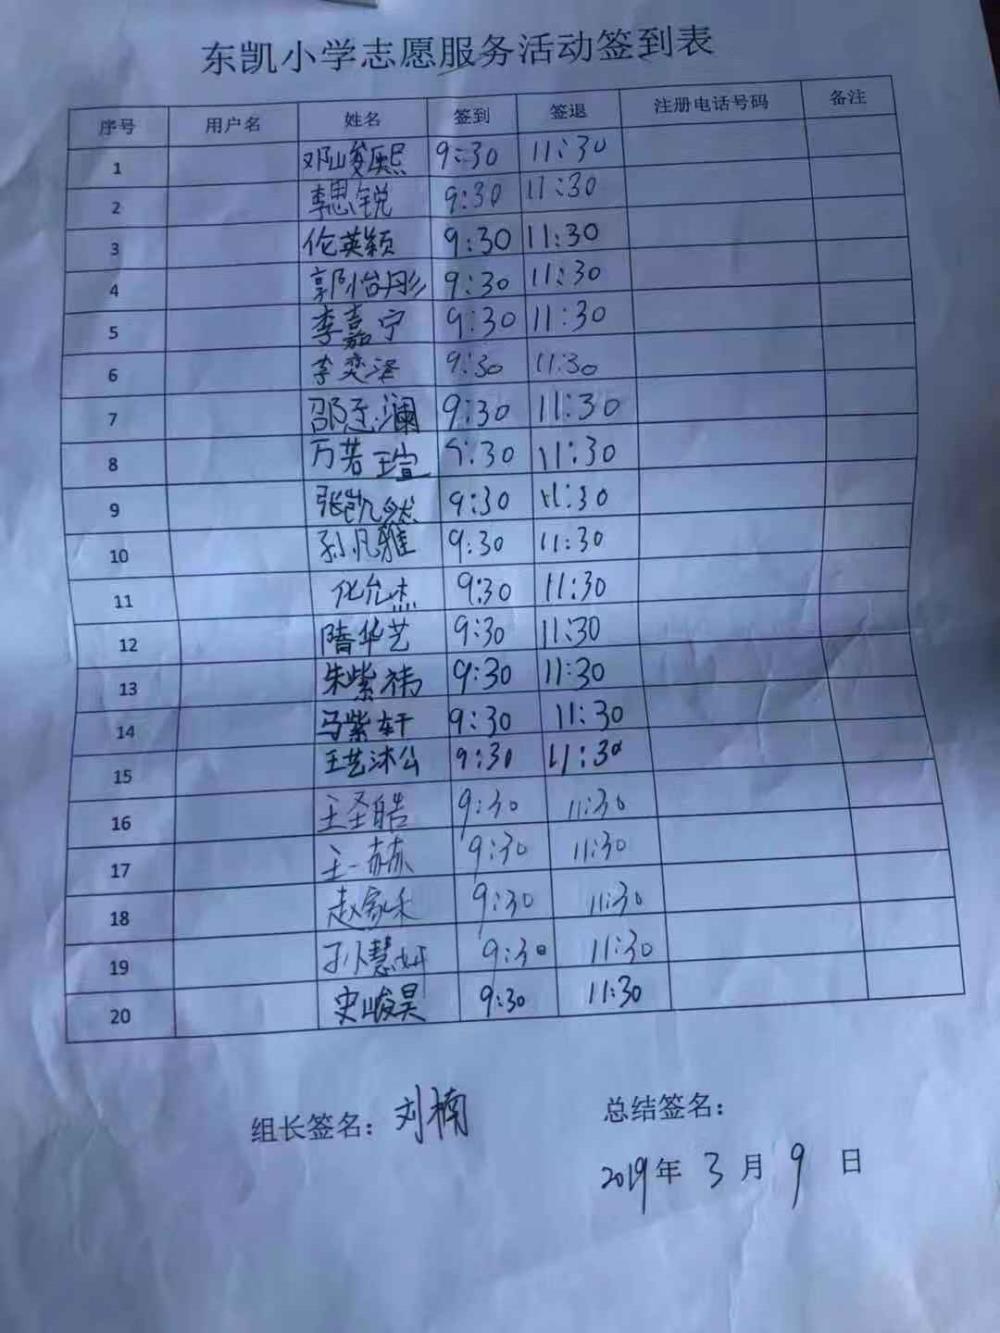 东凯小学志愿服务活动签到表
序号 用户名 姓名 签到 签退 注册电话号码 备注
1 邓峻熙 9:30 11:30
2 李思锐 9:30 11:30
3 伦英颖 9:30 11:30
4 郭怡彤 9:30 11:30
5 李嘉宁 9:30 11:30
6 李奕泽 9:30 11:30
7 邵玉澜 9:30 11:30
8 万若瑄 9:30 11:30
9 张凯然 9:30 11:30
10 孙凡雅 9:30 11:30
11 化允杰 9:30 11:30
12 隋华艺 9:30 11:30
13 朱紫祎 9:30 11:30
14 马紫轩 9:30 11:30
15 王艺沐公 9:30 11:30
16 王圣皓 9:30 11:30
17 王一赫 9:30 11:30
18 赵家禾 9:30 11:30
19 孙慧妍 9:30 11:30
20 史峻昊 9:30 11:30
组长签名：刘楠 总结签名：
2019年 3 月 9 日